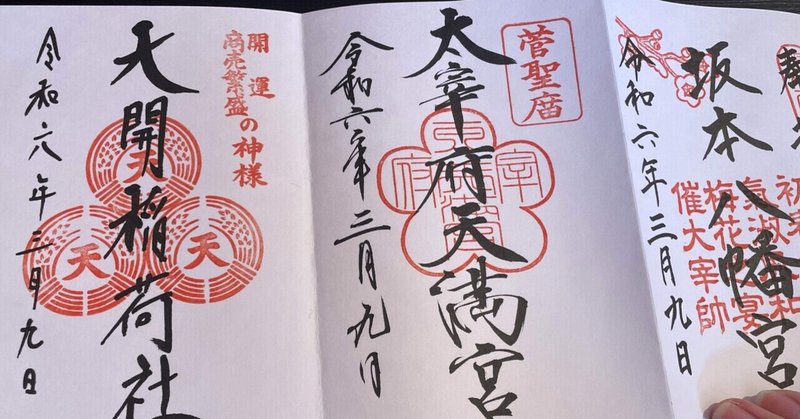 坂本八幡宮
催大宰帥
令和六年三月九日
菅聖庿
太宰府天満宮
宰
府
令和六年三月九日
開運
商売繁盛の神様
天開稲荷社
天
天
天
令和六年三月九日